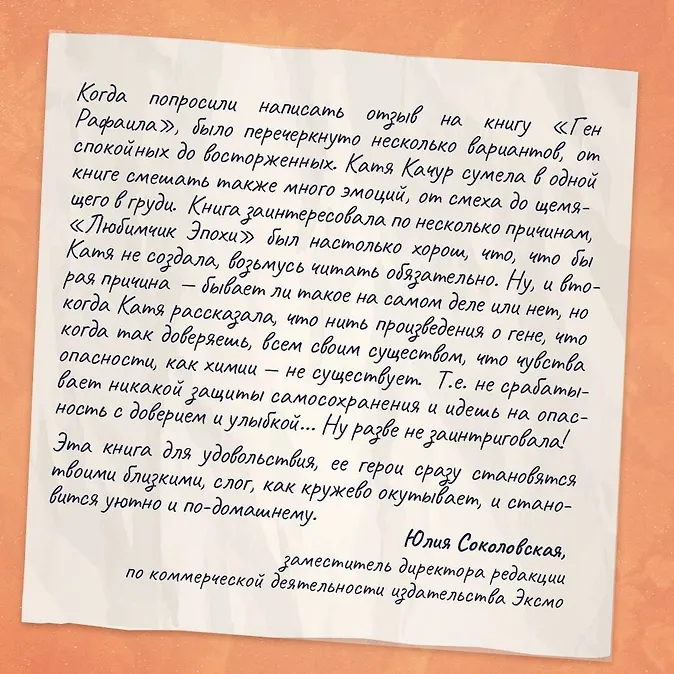 Когда попросили написать отзыв на книгу «Ген
Рафаила», было перечеркнуто несколько вариантов, от
спокойных до восторженных. Катя Качур сумела в одной
книге смешать также много эмоций, от смеха до щемя-
щего в груди. Книга заинтересовала по несколько причинам,
«Любимчик Эпохи» был настолько хорош, что, что бы
Катя не создала, возьмусь читать обязательно. Ну, и вто-
рая причина — бывает ли такое на самом деле или нет, но
когда Катя рассказала, что нить произведения о гене, что
когда так доверяешь, всем своим существом, что чувства
опасности, как химии — не существует. Т.е. не срабаты-
вает никакой защиты самосохранения и идешь на опас-
ность с доверием и улыбкой... Ну разве не заинтриговала!
Эта книга для удовольствия, ее герои сразу становятся
твоими близкими, слог, как кружево окутывает, и стано-
вится уютно и по-домашнему.
Юлия Соколовская,
заместитель директора редакции
по коммерческой деятельности издательства Эксмо